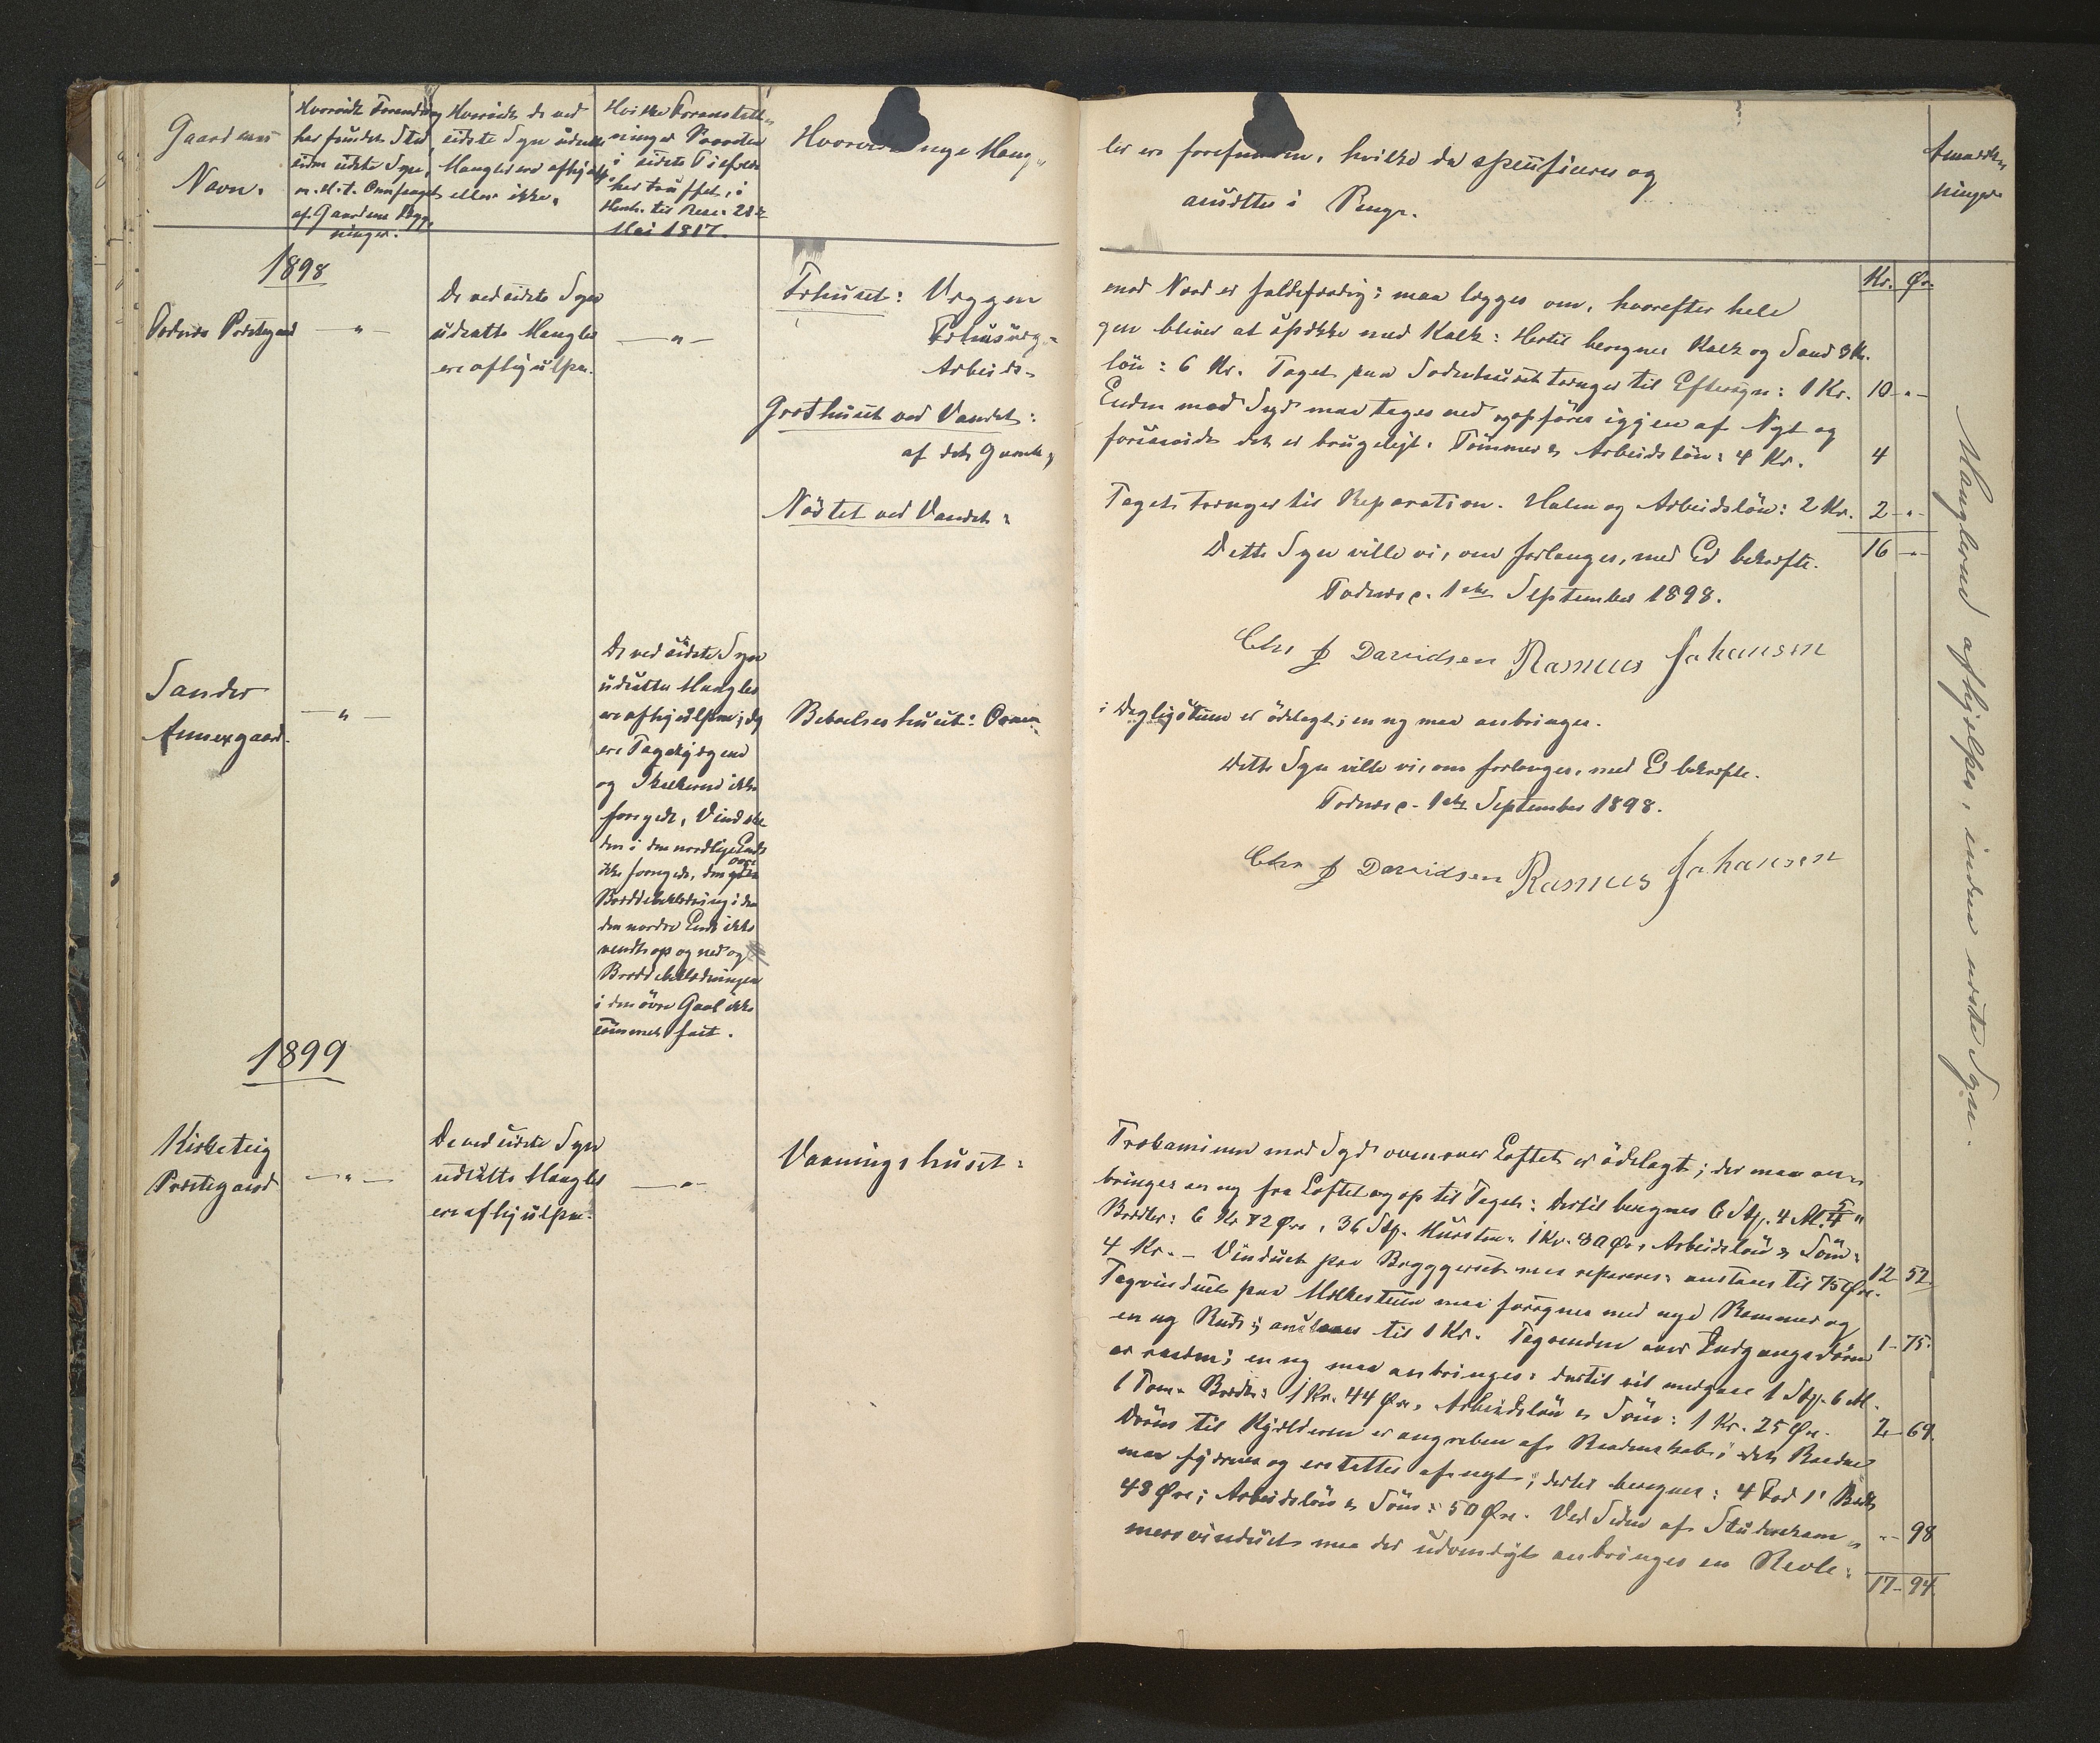 Gaardens
Navn.
Hvorvidt Forandring
har fundet Sted
siden sidste Syn,
m. H. t. Omfanget
af Gaardens Byg-
ninger.
Hvorvidt de ved
sidste Syn udsatte
Mangler ere afhjulpne
eller ikke.
Hvilke Foranstalt-
ninger Provsten
i sidste Tilfælde
har truffet, i
Henh. til Resc. 28de
Mai 1817.
Hvorvidt nye Mang-
ler ere forefundne, hvilke da specificeres og
ansættes i Penge.
Anmærk-
ninger
Kr. Ør.
1898
Todnæs Præstegaard
—"—
De ved sidste Syn
udsatte Mangler
ere afhjulpne.
—"—
Ildhuset: Væggen
mod Nord er faldefærdig; maa lægges om, hvorefter hele
Ildhusvæg-
gen bliver at uspække med Kalk: Hertil beregnes Kalk og Sand 3 Kr.
Arbeids-
løn: 6 Kr. Taget paa Ildhuset trænger til Eftersyn: 1 Kr. 10 - " -
Grothuset ved Vandet:
Enden mod Syd maa tages ned og opføres igjen af Nyt og
af det Gamle,
forsaavidt det er brugeligt. Tømmer & Arbeidsløn: 4 Kr. 4
Nøstet ved Vandet:
Taget trænger til Reparation. Halm og Arbeidsløn: 2 Kr. 2 - " -
16 - " -
Dette Syn ville vi, om forlanges, med Ed bekræfte.
Todnæs 1ste September 1898.
Chr J Davidsen Rasmus Johansen
Sander
Annexgaard.
—"—
De ved sidste Syn
udsatte Mangler
ere afhjulpne; dog
ere Tagskjægene
og Vindskierne ikke
fornyede, Vindskie
den i den nordlige Ende
ikke fornyede, den øvre
Bordbeklædning i den
den nordre Ende ikke
vendt op og ned og
Bordbeklædningen
i den øvre Gavl ikke
sømmet fast.
Beboelseshuset: Ovnen
i Dagligstuen er ødelagt; en ny maa anbringes.
Dette Syn ville vi, om forlanges, med Ed bekræfte.
Todnæs 1ste September 1898.
Chr J Davidsen Rasmus Johansen
Manglerne afhjælpes, inden næste Syn.
1899
Kirketeig
Præstegaard
—"—
De ved sidste Syn
udsatte Mangler
ere afhjulpne.
—"—
Vaaningshuset:
Trækaminen mod Syd ovenover Loftet er ødelagt; der maa an-
bringes en ny fra Loftet og op til Taget: Dertil beregnes 6 Stk. 4 Al. 5/4"
Bredder: 6 Kr 72 Øre, 36 Stk. Mursten: 1 Kr. 80 Øre, Arbeidsløn & Søm:
4 Kr. — Vinduet paa Bryggerset maa repareres: ansættes til 75 Øre. 12 - 52
Tagvinduet paa Melkestuen maa fornyes med nye Rammer og
en ny Rude; ansættes til 1 Kr. Tagrenden over Indgangsdøren 1 - 75.
er raadden; en ny maa anbringes: dertil vil medgaae 1 Stk. 6 Al.
1 Tom. Bredde: 1 Kr. 44 Øre, Arbeidsløn & Søm: 1 Kr. 25 Øre. 2 - 69.
Døren til Kjælderen er angreben af Raadenskab; det Raadne
maa fjernes og erstattes af nyt; dertil beregnes: 4 Fod 1" Bredde
48 Øre; Arbeidsløn & Søm: 50 Øre. Ved Siden af Studerekam- " - 98
mersvinduet maa der udvendigt anbringes en Revle:
17 - 94.